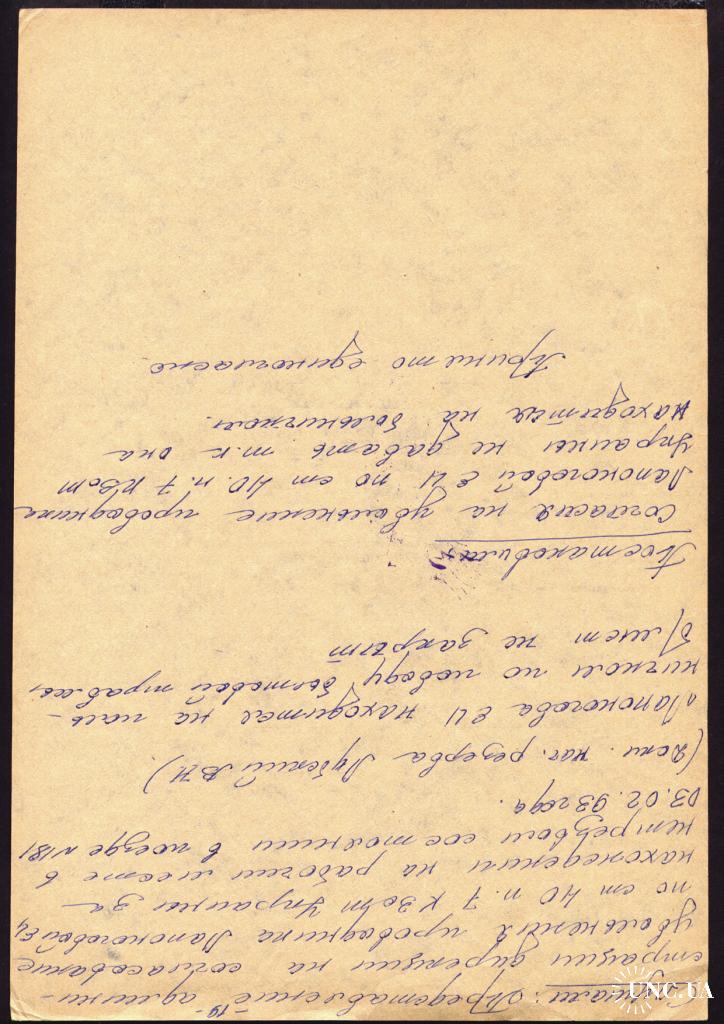 -19-
Слушали: Представление админи-
страции дирекции на согласование
увольнения проводника Лапоноговой Е И
по ст 40 п. 7 КЗоТ Украины за
нахождении на рабочем месте в
нетрезвом состоянии в поезде № 181
03.02.93 года.
(Докл. нач. резерва В Н)
Лапоногова Е И находится на
по поводу бытовой травмы,
не закрыт
Постановили:
Согласия на увольнение проводника
Лапоноговой Е И по ст 40. п. 7 КЗоТ
Украины не давать т. к она
находится на больничном.
Принято единогласно
UNC.UA